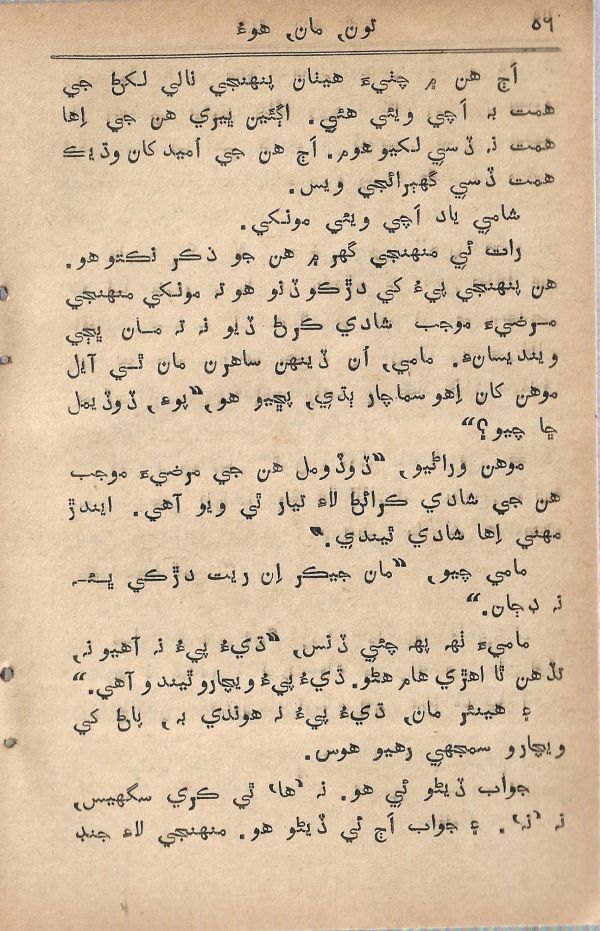 ٥٦ تون, مان, هوءُ
اَڄ هن ۾ چٺيءَ هيٺان پنهنجي نالي لکڻ جي
همت بہ اَچي ويئي هئي. اڳئين ڀيري هن جي اِها
همت نہ ڏسي لکيو هوم. اَڄ هن جي اُميد کان وڌيڪ
همت ڏسي گهٻرائجي ويس.
شامي ياد اَچي ويئي مونکي.
رات ئي منهنجي گهر ۾ هن جو ذڪر نڪتو هو.
هن پنهنجي پيءُ کي دڙڪو ڏنو هو تہ مونکي منهنجي
مرضيءَ موجب شادي ڪرڻ ڏيو نہ تہ مان ڀڄي
وينديسانءِ. مامي, اُن ڏينهن ساهرن مان ئي آيل
موهن کان اِهو سماچار ٻڌي, پڇيو هو, “پوءِ, ڏوڏيمل
ڇا چيو؟“
موهن وراڻيو, “ڏوڏومل هن جي مرضيءَ موجب
هن جي شادي ڪرائڻ لاءِ تيار ٿي ويو آهي. ايندڙ
مهني اِها شادي ٿيندي.“
مامي چيو, “مان جيڪر اِن ريت دڙڪي پئہ
نہ ڊڄان.“
ماميءَ ٺهہ پهہ چئي ڏنس, “ڌيءُ پيءُ نہ آهيو نہ,
تڏهن ٿا اهڙي هام هڻو. ڌيءُ پيءُ ويچارو ٿيندو آهي.“
۽ هينئر مان, ڌيءُ پيءُ نہ هوندي بہ, پاڻ کي
ويچارو سمجهي رهيو هوس.
جواب ڏيڻو ئي هو. نہ ‘ها‘ ئي ڪري سگهيس,
نہ ‘نہ‘. ۽ جواب اَڄ ئي ڏيڻو هو. منهنجي لاءِ جند